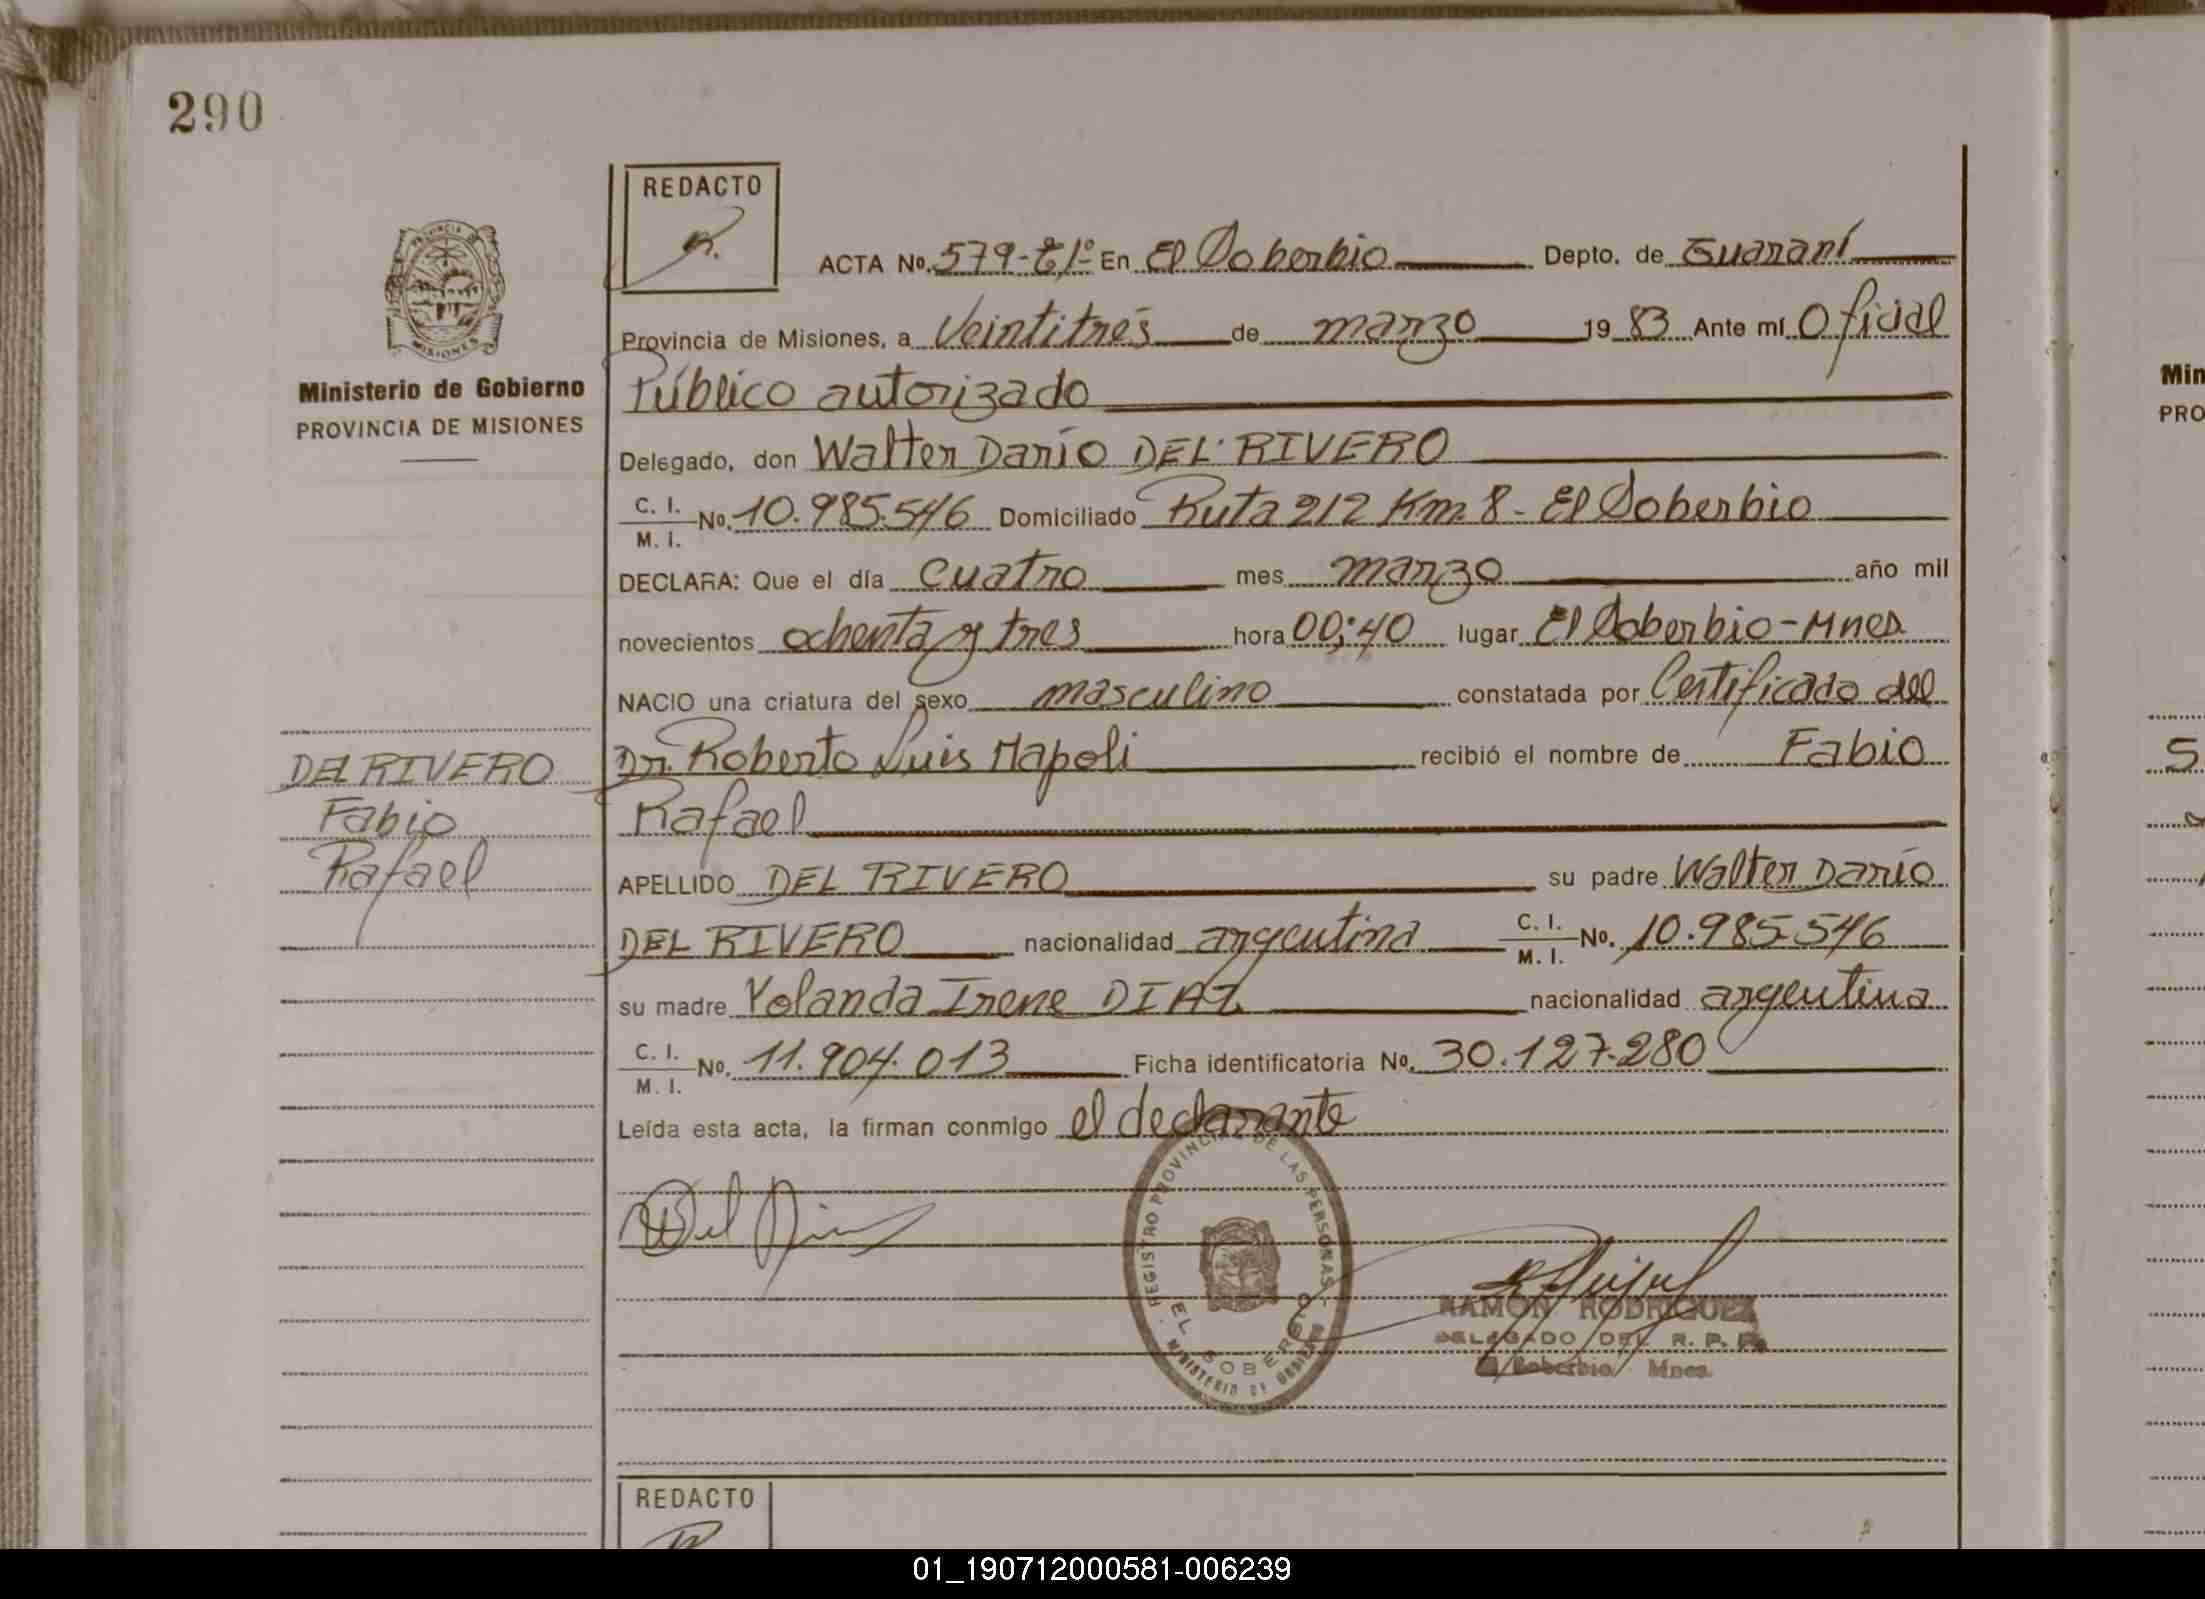 290
REDACTO
ACTA No. 579-tº1º En El Soberbio Depto. de Guaraní
Provincia de Misiones, a Veintitrés de marzo 1983 Ante mí Oficial
Público autorizado
Delegado, don Walter Darío DEL RIVERO
C. I.
M. I. No. 10.985.546 Domiciliado Ruta 212 Km. 8 - El Soberbio
DECLARA: Que el día cuatro mes marzo año mil
novecientos ochenta y tres hora 00:40 lugar El Soberbio-Mnes
NACIO una criatura del sexo masculino constatada por Certificado del
Dr. Roberto Luis Napoli recibió el nombre de Fabio
Rafael
APELLIDO DEL RIVERO su padre Walter Darío
DEL RIVERO nacionalidad argentina C. I. M. I. No. 10.985.546
su madre Yolanda Irene DIAZ nacionalidad argentina
C. I.
M. I. No. 11.904.013 Ficha identificatoria No. 30.127.280
Leída esta acta, la firman conmigo el declarante
Ministerio de Gobierno
PROVINCIA DE MISIONES
PROVINCIA DE
MISIONES
DEL RIVERO
Fabio
Rafael
REGISTRO PROVINCIAL DE LAS PERSONAS
EL SOBERBIO
MINISTERIO DE GOBIERNO
RAMON RODRIGUEZ
DELEGADO DEL R. P. P.
El Soberbio Mnes.
REDACTO
Min
PRO
S
01_190712000581-006239